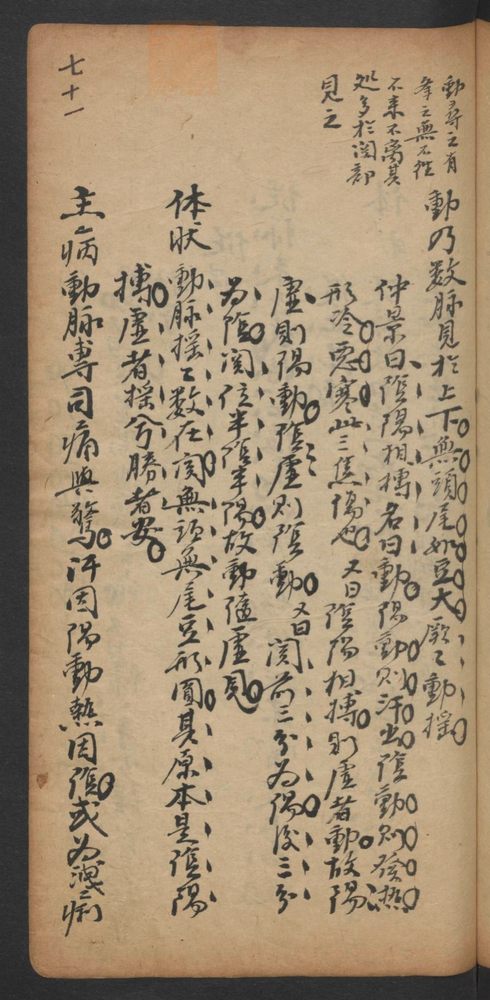 動尋之有
舉之無不往
不来不离其
処多於関部
見之
動乃數脉見於上下無頭尾如豆大厥々動揺
仲景曰陰陽相搏名曰動陽動則汗出陰動則發热
形冷恶寒此三焦傷也又曰陰陽相搏則虛者動故陽
虛則陽動陰虛則陰動又曰関前三分为陽後三分
为陰関位半陰半陽故動隨虛見
体狀動脉揺々數在関無頭無尾豆形圓其原本是陰陽
搏虛者揺兮勝者安
主病動脉專司痛與驚汗因陽動熱因陰或为洩痢
七十一